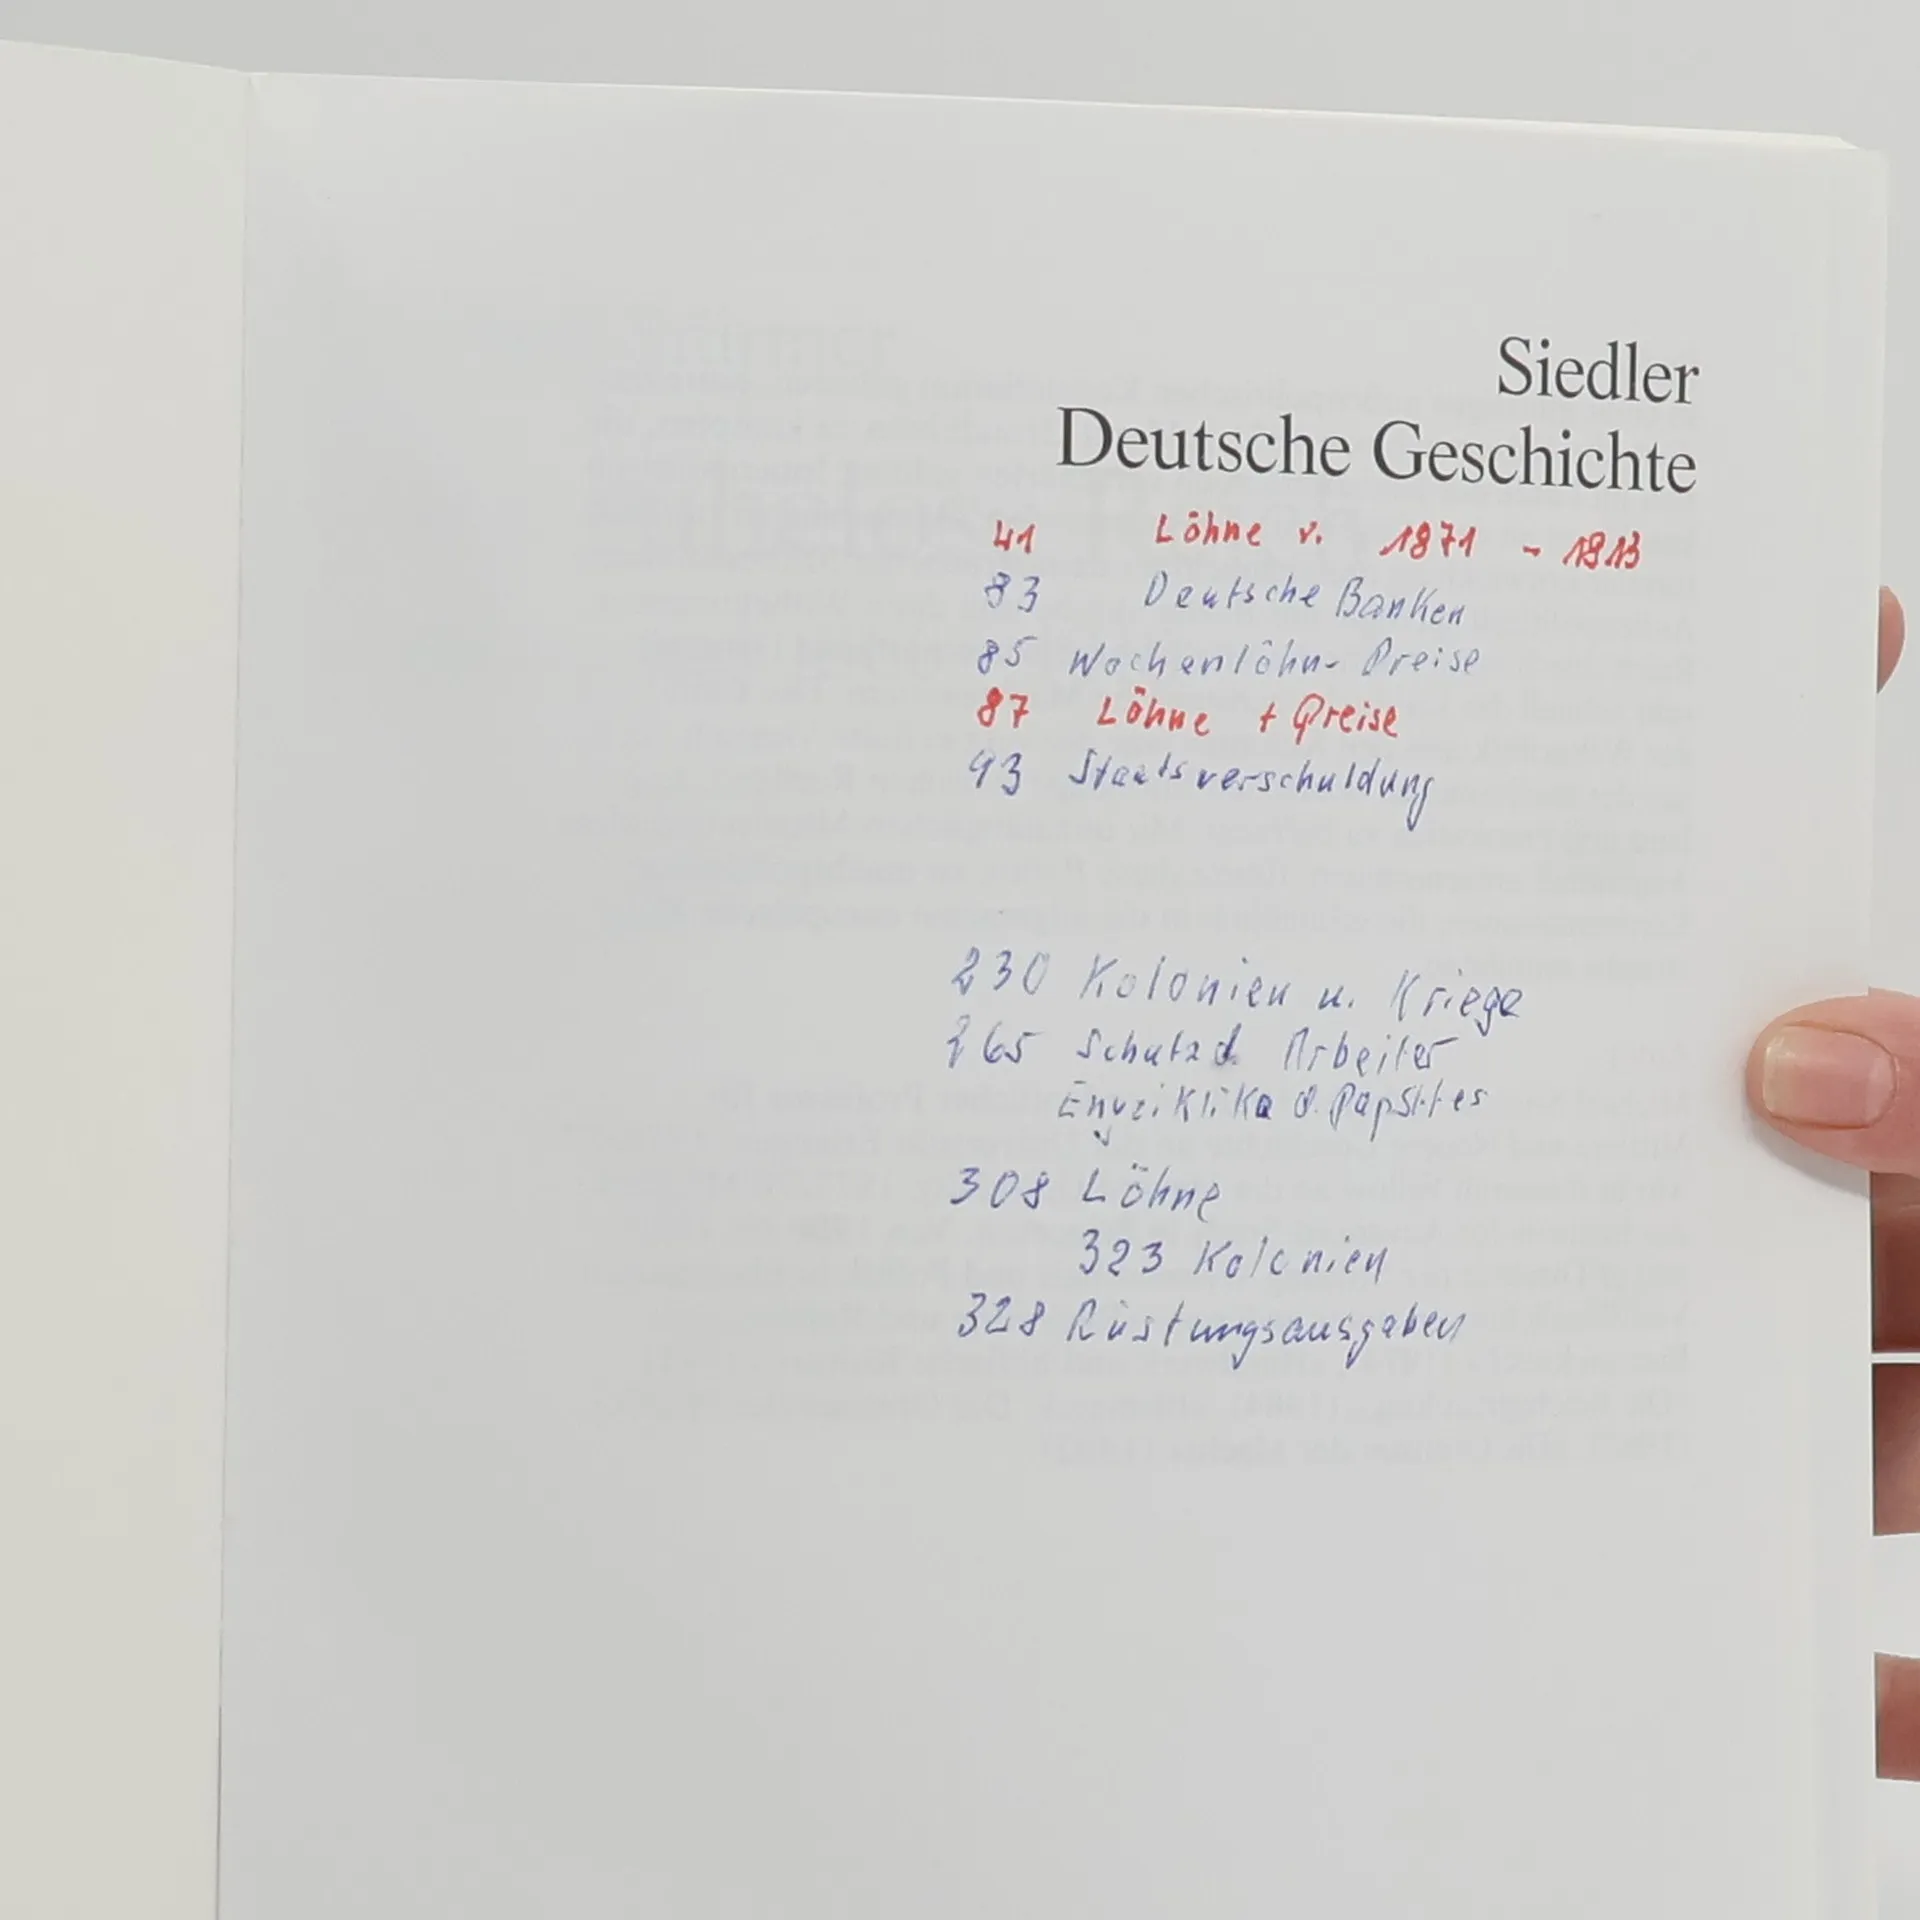 Siedler
Deutsche Geschichte
41 Löhne v. 1871 - 1913
83 Deutsche Banken
85 Wochenlöhn- Preise
87 Löhne + Preise
93 Staatsverschuldung
230 Kolonien u. Kriege
265 Schutz d. Arbeiter
Enyziklika d. Papstes
308 Löhne
323 Kolonien
328 Rüstungsausgaben